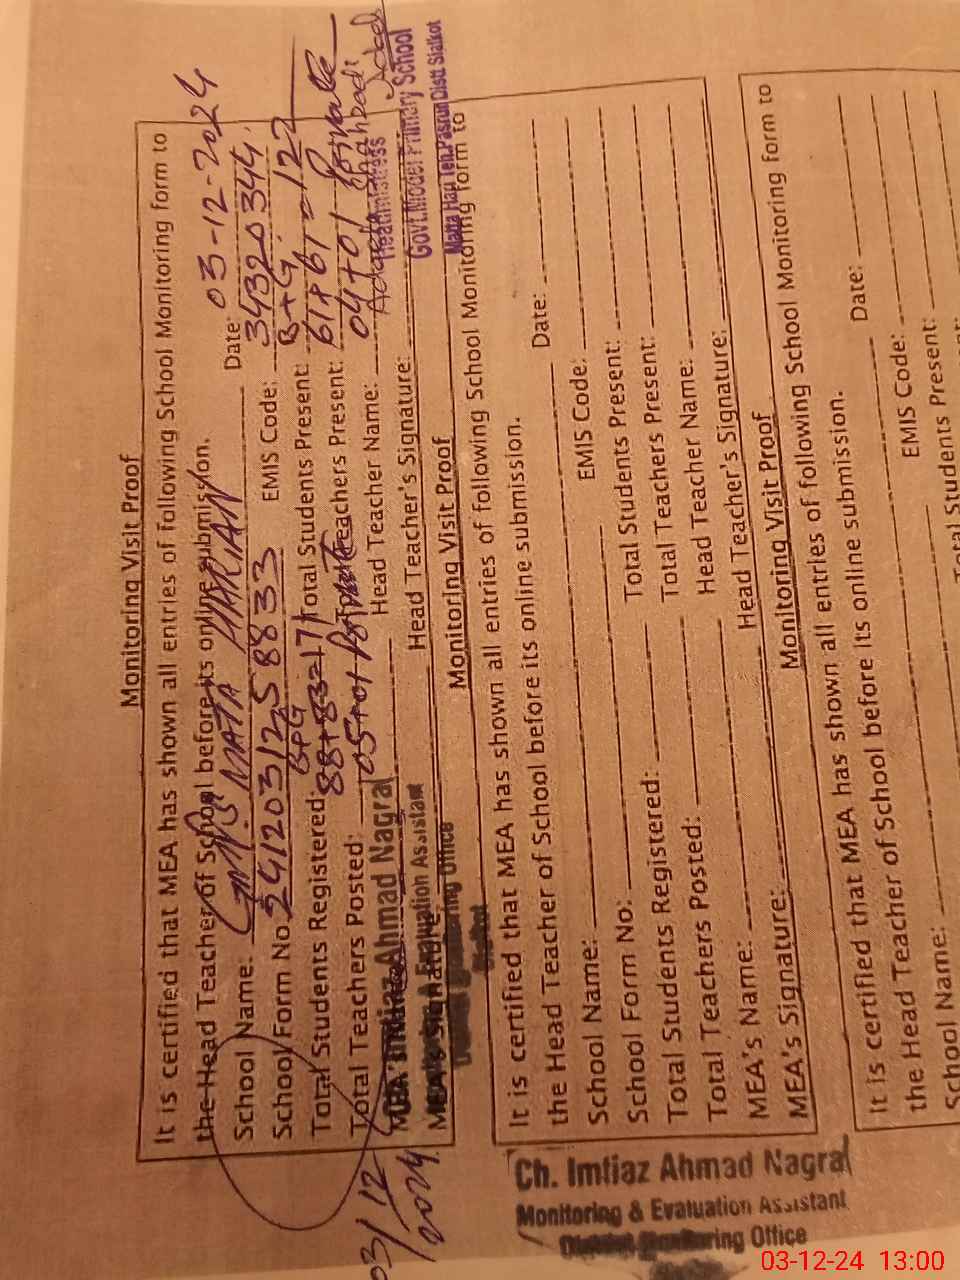 Monitoring Visit Proof
It is certified that MEA has shown all entries of following School Monitoring form to
the Head Teacher of School before its online submission.
School Name: GMPS MATA HARIAN Date: 03-12-2024
School Form No. 241203125 8833 EMIS Code: 34320344
B+G B+G
Total Students Registered: 88+83=171 Total Students Present: 61+61=122
Total Teachers Posted: 05+01 Private Teachers Present: 04+01 Private
MEA's Imtiaz Ahmad Nagra Head Teacher Name:
MEA's Signature: Head Teacher's Signature:
Monitoring & Evaluation Assistant
District Monitoring Office
Headmistress
Govt.Model Primary School
Teh.Pasrur Distt Sialkot
03/12
2024
Monitoring Visit Proof
It is certified that MEA has shown all entries of following School Monitoring form to
the Head Teacher of School before its online submission.
School Name: Date:
School Form No: EMIS Code:
Total Students Registered: Total Students Present:
Total Teachers Posted: Total Teachers Present:
MEA's Name: Head Teacher Name:
MEA's Signature: Head Teacher's Signature:
Ch. Imtiaz Ahmad Nagra
Monitoring & Evaluation Assistant
District Monitoring Office
Monitoring Visit Proof
It is certified that MEA has shown all entries of following School Monitoring form to
the Head Teacher of School before its online submission.
School Name: Date:
EMIS Code:
Total Students Present:
03-12-24 13:00